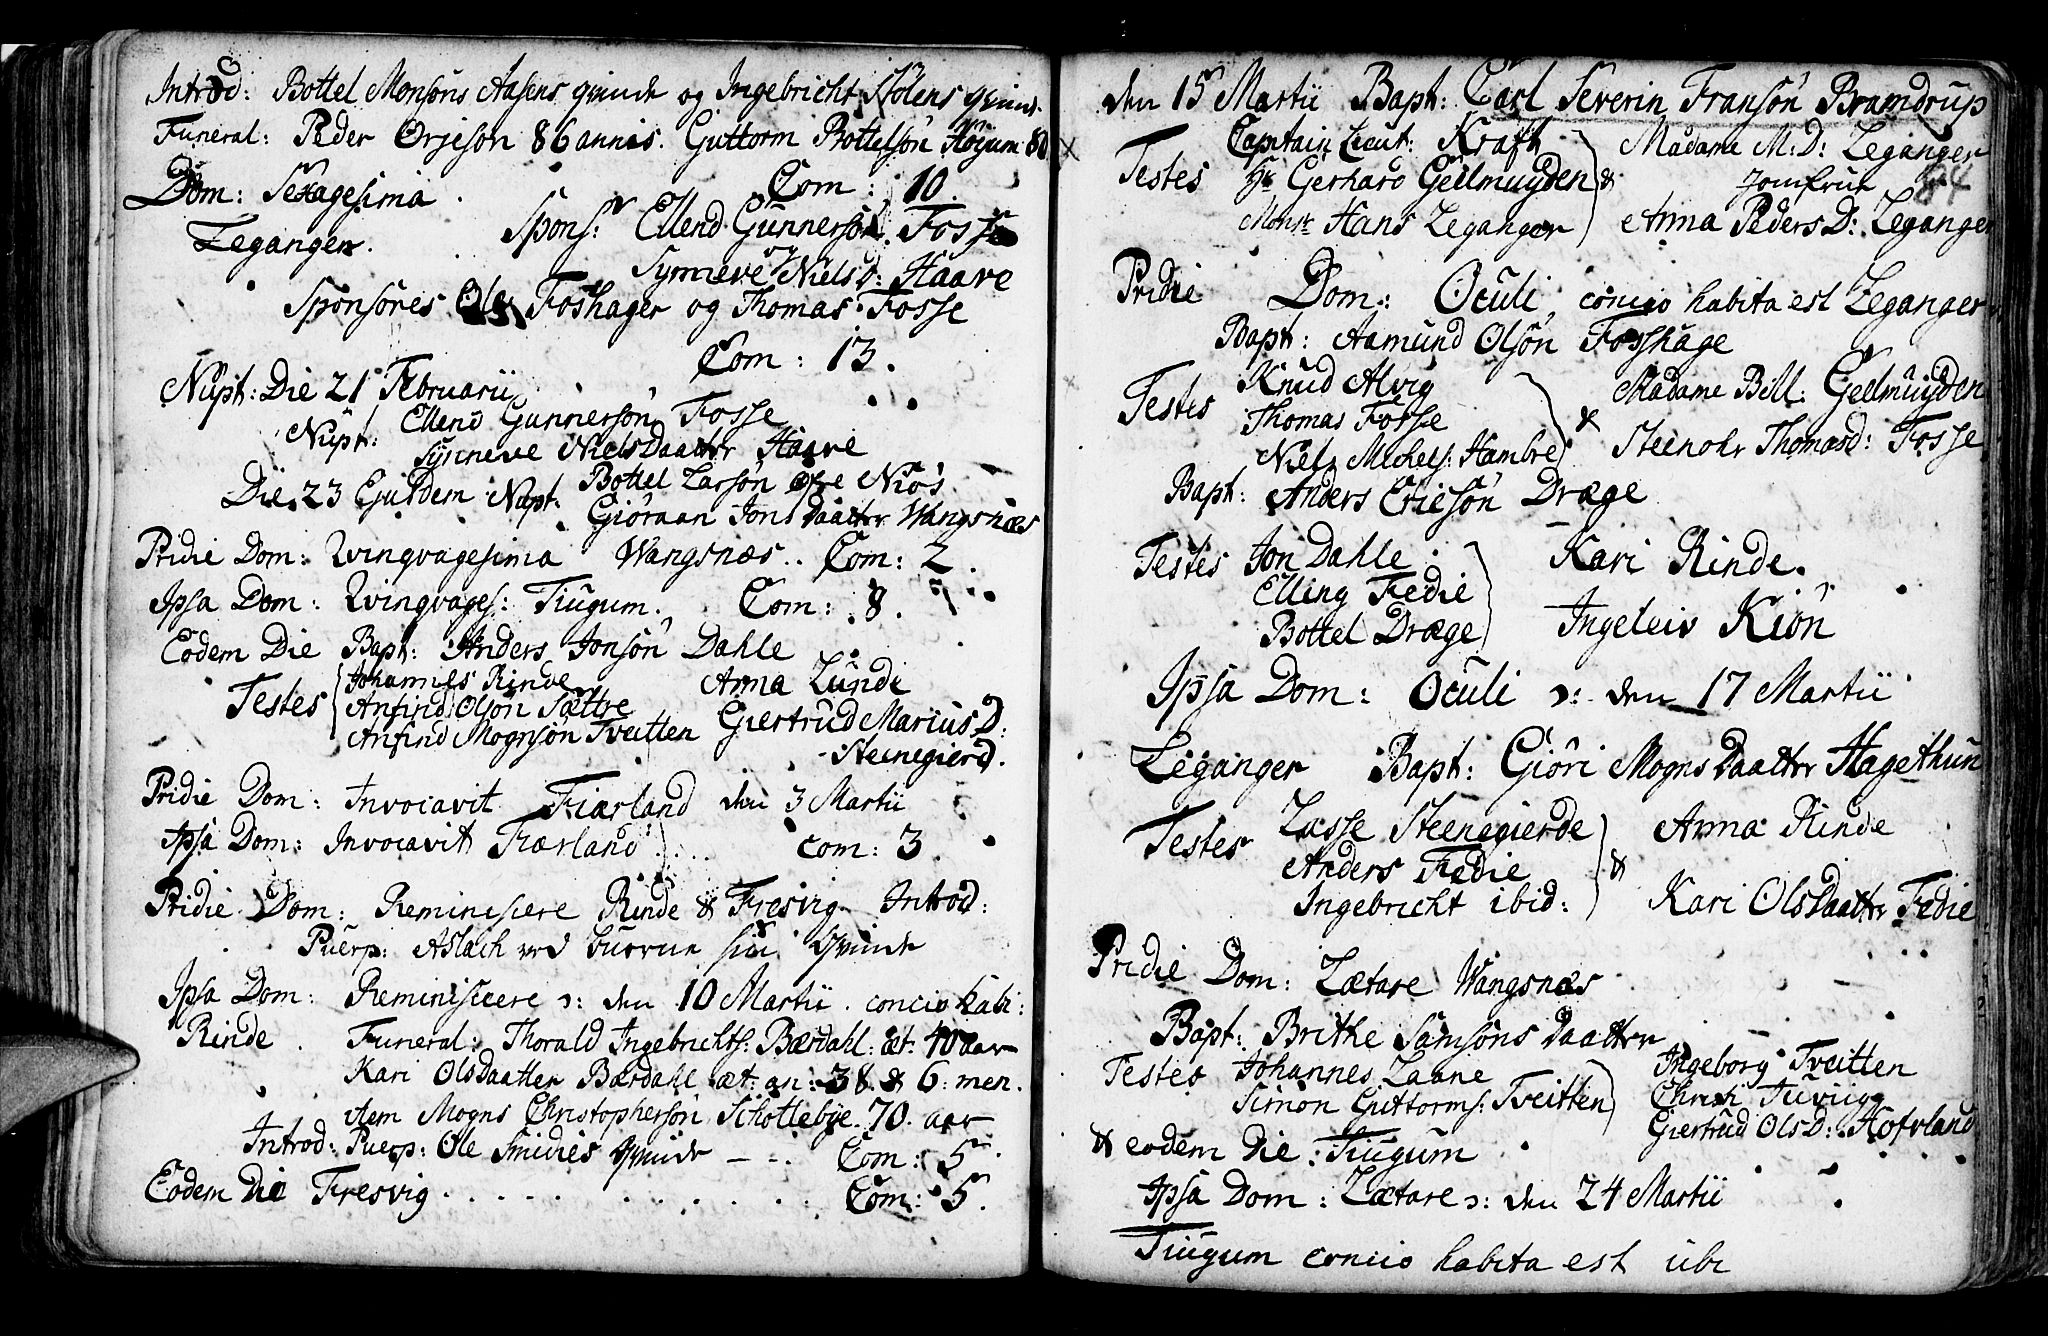 Introd: Bottel Monsöns Aasens qvinde og Ingebricht Stölens qvinde.
Funeral: Peder Orjeson 86 annis. Guttorm Bottelsön Höyum 80
Com: 10.
Dom: Sexagesima.
Leganger. Spons: Ellend Gunnersön Fosse
Synneve Niels D: Haave
Sponsores Ole Foshager og Thomas Fosse
Com: 13.
Nupt: Die 21 Februarii
Nupt: Ellend Gunnersön Fosse
Synneve NielsDaatter Haave
Die 23 Ejusdem Nupt: Bottel Larsön Öfre Niös
Giöraan Jons Daatter Wangsnæs
Pridie Dom: Qvinqvagesima Wangsnæs.. Com: 2.
Ipsa Dom: Qvinqvages: Tiugum. Com: 8.
Eodem Die Bapt: Anders Jonsön Dahle
Testes Johannes Rinde Anna Lunde
Anfind Olsön Sættre Giertrud Marius D:
Anfind Mognsön Tveitten Steinegierd.
Pridie Dom: Invocavit Fiærland den 3 Martii
Ipsa Dom: Invocavit Fiærland com: 3.
Pridie Dom: Reminiscere Rinde & Fresvig. Introd:
Puerp: Aslach sin Qvinde
Ipsa Dom: Reminiscere ɔ: den 10 Martii. concio habi:
Rinde. Funeral: Thorald Ingebrichts: Bærdahl: æt: 40 aar
Kari OlsDaatter Bærdahl æt: an: 38 & 6: men.
item Mogns Christophersön Schottebye. 70. aar
Introd: Puerp: Ole Smides qvinde Com: 5.
Eodem Die Fresvig. Com: 5.
den 15 Martii Bapt: Carl Severin Fransön Bramdrup
84
Testes Captain Lieut: Kraft Madame M: D: Leganger
Hr Gerhard Geelmuyden & Jomfrue
Monsr Hans Leganger Anna Peders D: Leganger
Pridie Dom: Oculi, concio habita est Leganger
Bapt: Aamund Olsön Fosshage
Testes Knud Alvig Madame Bill: Geelmuyden
Thomas Fosse &
Niels Michels: Hambre Steenohr Thomasd: Fosse
Bapt: Anders Ericsön Dræge
Testes Jon Dahle Kari Rinde.
Elling Fedie
Bottel Dræge Ingeleiv Kiön
Ipsa Dom: Oculi ɔ: den 17 Martii
Leganger Bapt: Giöri Mogns Daatter Hagethun
Testes Lasse Steenegierde Anna Rinde
Anders Fedie &
Ingebricht ibid: Kari OlsDaatter Fedie
Pridie Dom: Lætare Wangsnæs
Bapt: Brithe Samsöns Daatter
Testes Johannes Laane Ingeborg Tveitten
Simon Guttorms: Tveitten
Giertrud Ols D: Hofvland
& eodem Die: Tiugum
Ipsa Dom: Lætare ɔ: den 24 Martii
Tiugum concio habita est ubi